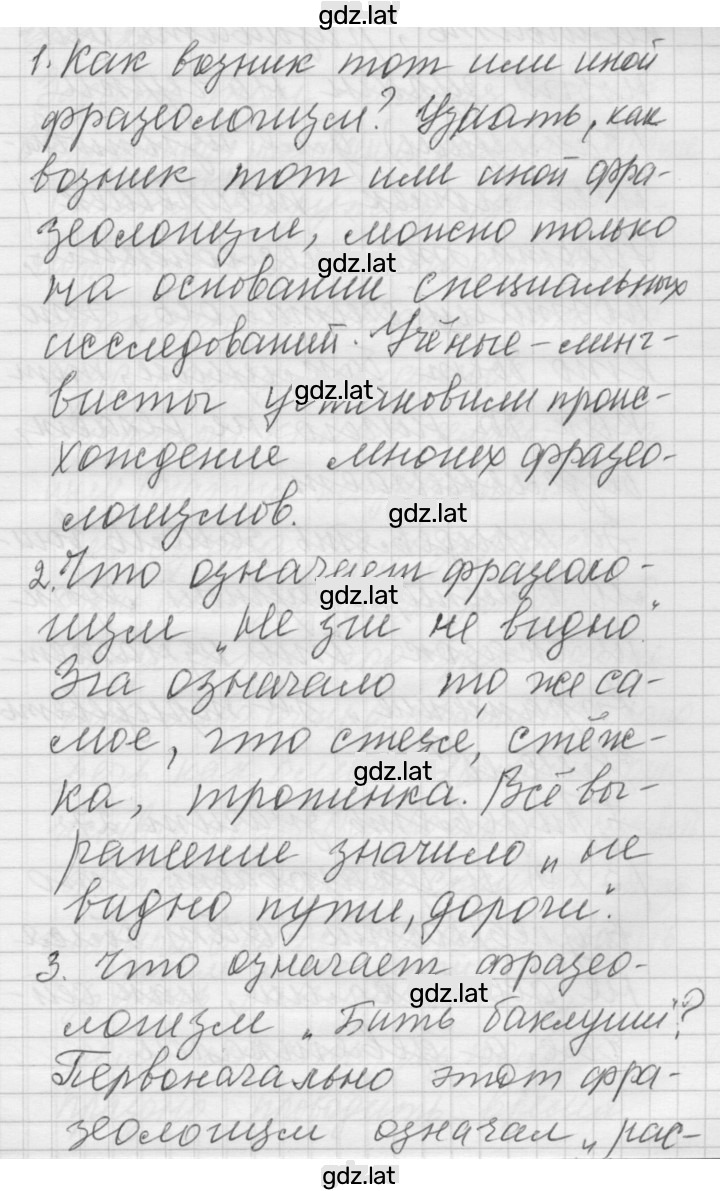 gdz.lat
1. Как возник тот или иной
фразеологизм? Узнать, как
возник тот или иной фра-
зеологизм, можно только
gdz.lat
на основании специальных
исследований. Учёные-линг-
gdz.lat
висты установили проис-
хождение многих фразео-
логизмов.
gdz.lat
2. Что означает фразеоло-
gdz.lat
гизм „Не зги не видно".
Зга означало то же са-
мое, что стезе, стёж-
gdz.lat
ка, тропинка. Всё вы-
ражение значило „не
видно пути, дороги".
3. Что означает фразео-
gdz.lat
логизм „Бить баклуши"?
Первоначально этот фра-
зеологизм означал „рас-
gdz.lat